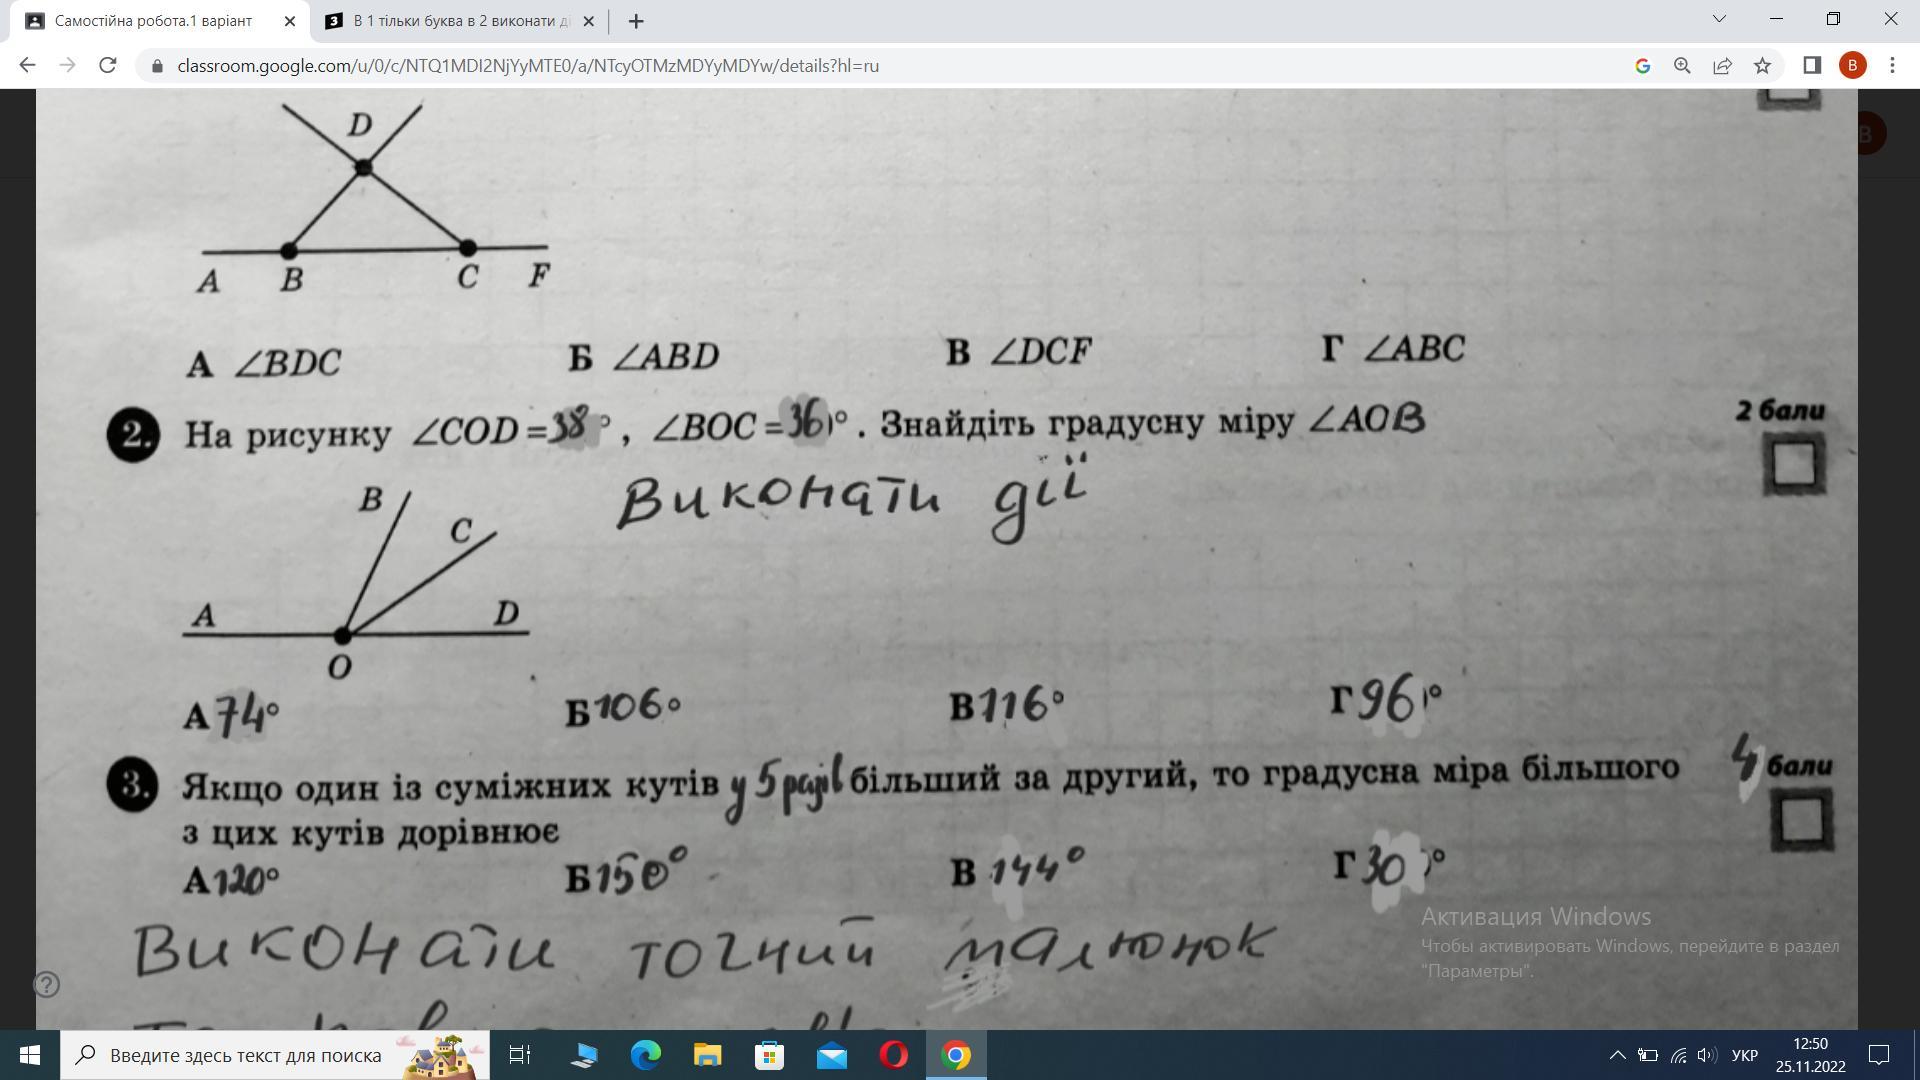 Самостійна робота.1 варіант
В 1 тільки буква в 2 виконати ді
classroom.google.com/u/0/c/NTQ1MDI2NjYyMTE0/a/NTcyOTMzMDYyMDYw/details?hl=ru
B
B
D
A B C F
А ∠BDC Б ∠ABD В ∠DCF Г ∠ABC
2. На рисунку ∠COD = 38°, ∠BOC = 36°. Знайдіть градусну міру ∠AOB
2 бали
Виконати дії
B
C
A D
O
А 74° Б 106° В 116° Г 96°
3. Якщо один із суміжних кутів у 5 разів більший за другий, то градусна міра більшого
4 бали
з цих кутів дорівнює
А 120° Б 150° В 144° Г 30°
Виконати точний малюнок
Активация Windows
Чтобы активировать Windows, перейдите в раздел
"Параметры".
Введите здесь текст для поиска
УКР
12:50
25.11.2022